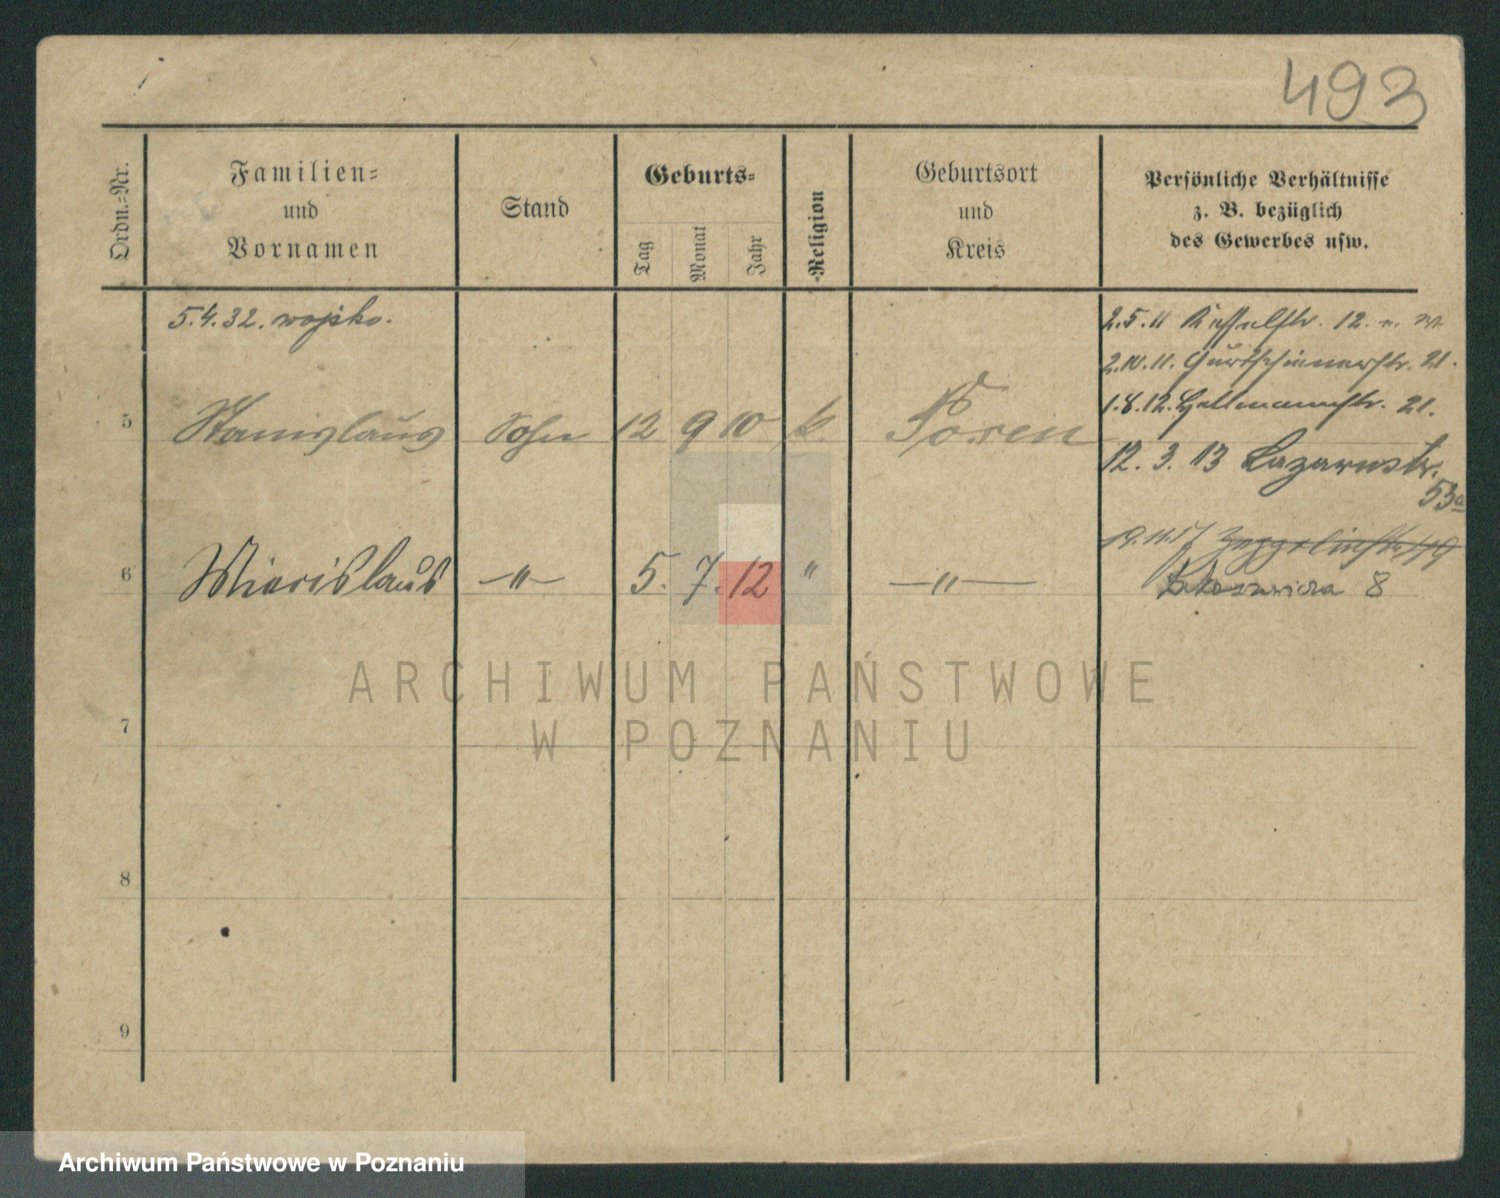 493
Ordn.-Nr.
Familien-
und
Vornamen
Stand
Geburts-
Tag
Monat
Jahr
Religion
Geburtsort
und
Kreis
Persönliche Verhältnisse
z. B. bezüglich
des Gewerbes usw.
5.4.32. wojsko.
2.5.11 12.
2.10.11. Gurtschinerstr. 21.
1.8.12. Hellmannstr. 21.
5 Stanislaus Sohn 12 9 10 k. Posen
12. 3. 13 Lazarusstr.
53a
6 Miecislaus –"– 5. 7. 12 " –"–
Zeppelinstr.
8
7
8
9
ARCHIWUM PAŃSTWOWE
W POZNANIU
Archiwum Państwowe w Poznaniu